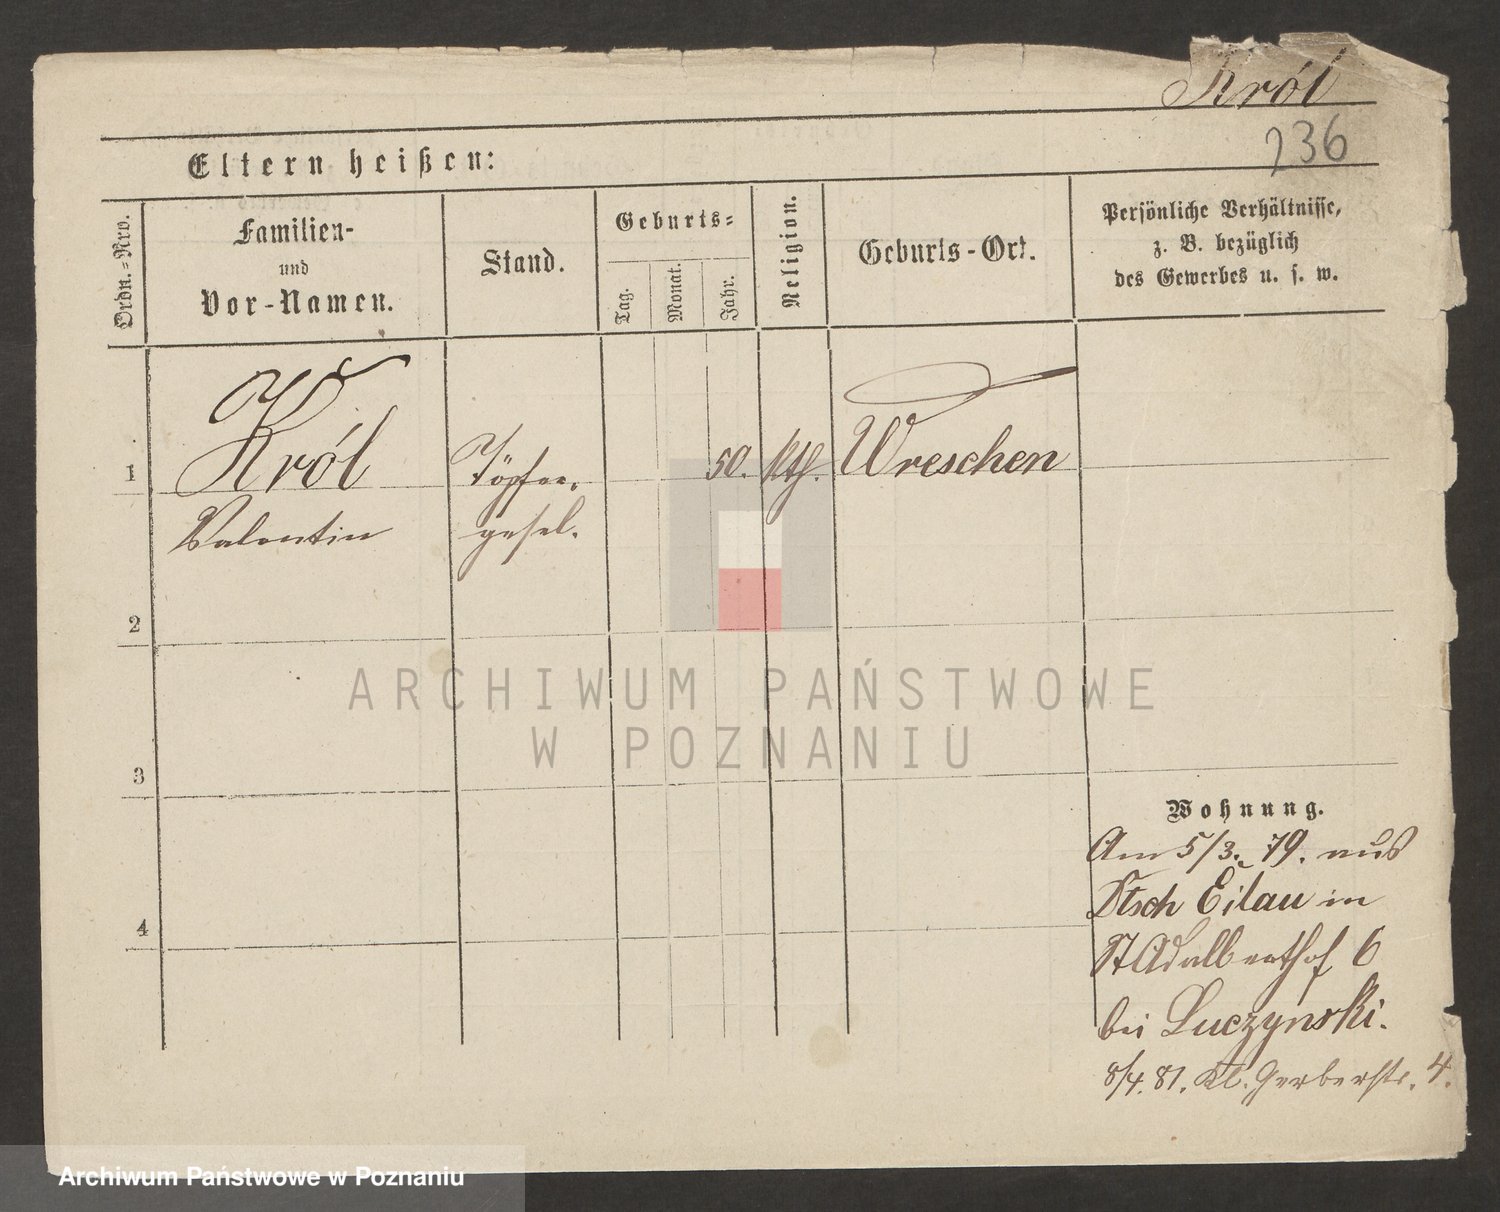 Król
236
Eltern heißen:
Ordn.-Nro.
Familien-
und
Vor-Namen.
Stand.
Geburts-
Tag.
Monat.
Jahr.
Religion.
Geburts-Ort.
Persönliche Verhältnisse,
z. B. bezüglich
des Gewerbes u. s. w.
1
Król
Valentin
Töpfer.
gesel.
50.
kth.
Wreschen
2
3
4
Wohnung.
Am 5/3. 79. aus
Dtsch Eilau in
St Adalberthof 6
bei Luczynski.
8/4. 81. Kl. Gerberstr. 4.
ARCHIWUM PAŃSTWOWE
W POZNANIU
Archiwum Państwowe w Poznaniu